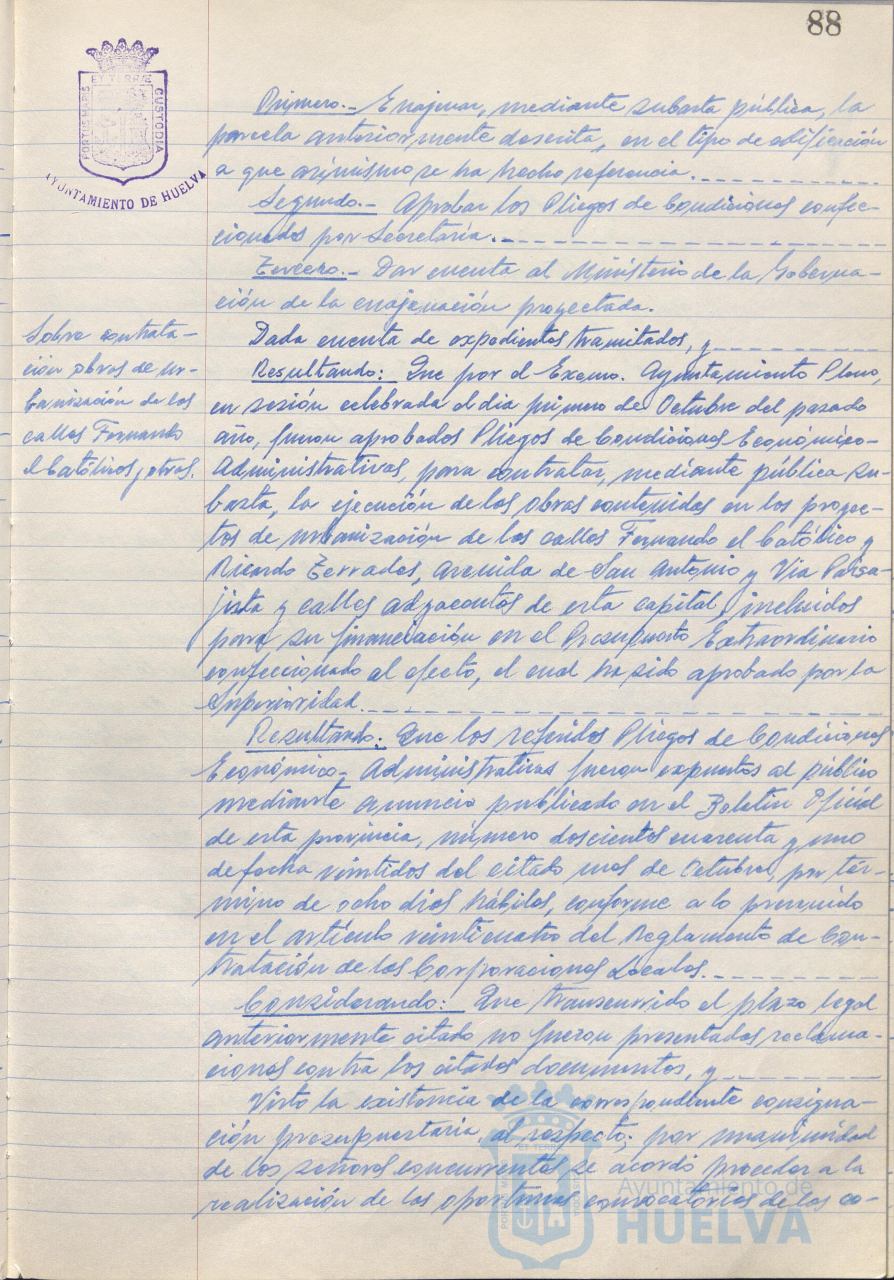 88
PORTUS MARIS
ET TERRÆ
CUSTODIA
AYUNTAMIENTO DE HUELVA
Primero.- Enajenar, mediante subasta pública, la
parcela anteriormente descrita, en el tipo de edificación
a que asimismo se ha hecho referencia.
Segundo.- Aprobar los Pliegos de Condiciones confec-
cionados por Secretaría.
Tercero.- Dar cuenta al Ministerio de la Goberna-
ción de la enajenación proyectada.
Sobre contrata-
ción obras de ur-
banización de las
calles Fernando
el Católico y otras.
Dada cuenta de expedientes tramitados, y
Resultando: Que por el Excmo. Ayuntamiento Pleno,
en sesión celebrada el día primero de Octubre del pasado
año, fueron aprobados Pliegos de Condiciones Económico-
Administrativas, para contratar, mediante pública su-
basta, la ejecución de las obras contenidas en los proyec-
tos de urbanización de las calles Fernando el Católico y
Ricardo Terrades, avenida de San Antonio y Via Paisa-
jista y calles adyacentes de esta capital, incluidos
para su financiación en el Presupuesto Extraordinario
confeccionado al efecto, el cual ha sido aprobado por la
Superioridad.
Resultando: Que los referidos Pliegos de Condiciones
Económico-Administrativas fueron expuestos al público
mediante anuncio publicado en el Boletín Oficial
de esta provincia, número doscientos cuarenta y uno
de fecha veintidos del citado mes de Octubre, por tér-
mino de ocho días hábiles, conforme a lo prevenido
en el artículo veinticuatro del Reglamento de Con-
tratación de las Corporaciones Locales.
Considerando: Que transcurrido el plazo legal
anteriormente citado no fueron presentadas reclama-
ciones contra los citados documentos, y
Visto la existencia de la correspondiente consigna-
ción presupuestaria al respecto; por unanimidad
de los señores concurrentes se acordó proceder a la
realización de las oportunas convocatorias de las co-
Ayuntamiento de
HUELVA